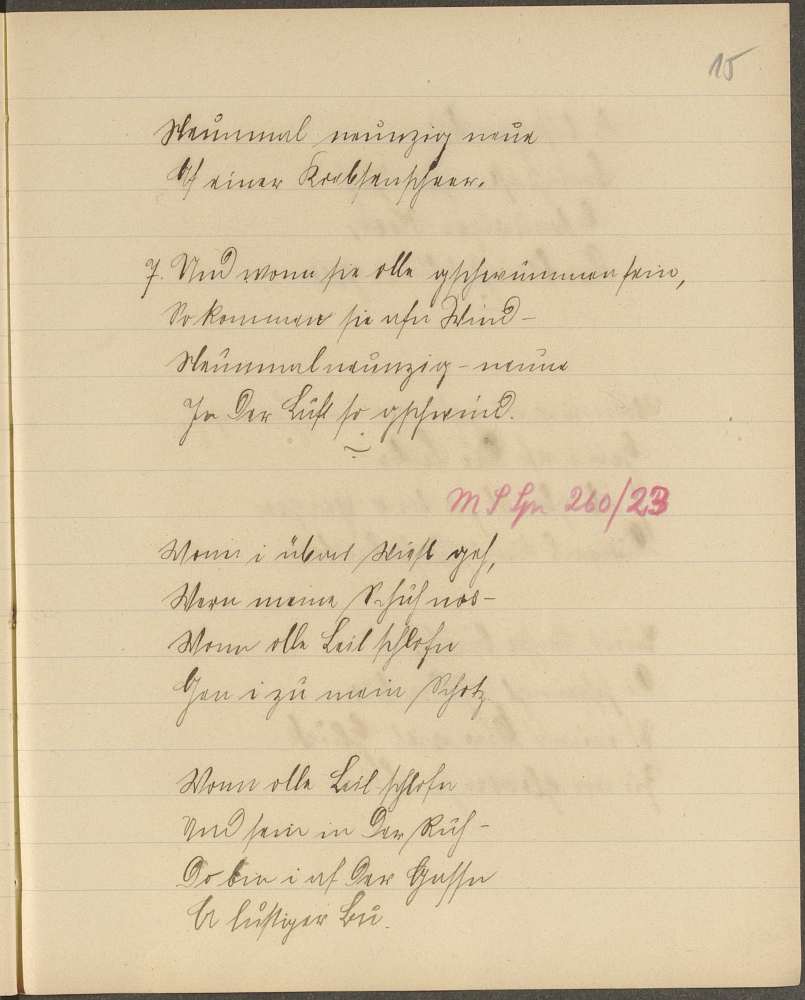 15
Neunmal neunzig neue
Af einer Krebsenscheer.
7. Und wonn sie olle gschwummen sein,
So kommen sie afn Wind –
Neunmalneunzig – neune
In der Luft so gschwind.
M S Gr 260/23
Wonn i übers Wiesl geh,
Wern meine Schuh nos –
Wonn olle Leil schlofn
Gea i zu mein Schotz
Wonn olle Leil schlofn
Und sein in der Ruh –
Do bin i af der Gassn
A lustiger Bu.